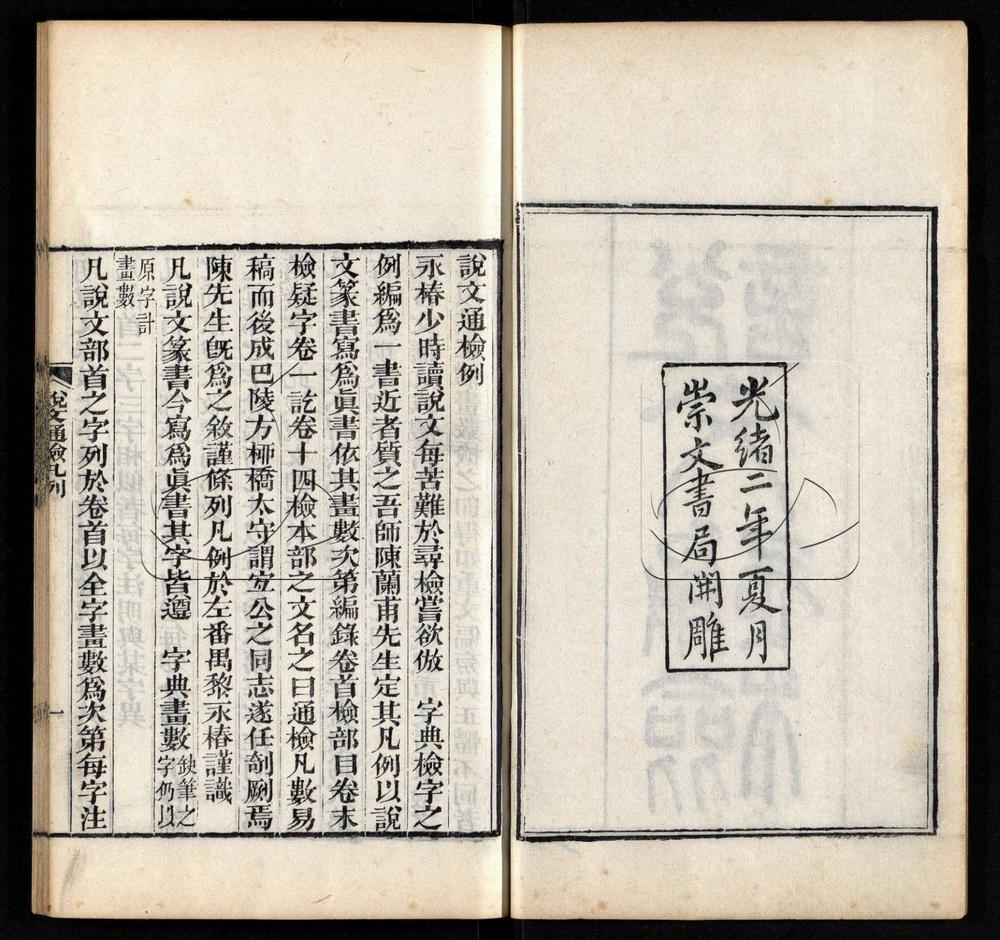 光緒二年夏月
崇文書局開雕
說文通檢例
永椿少時讀說文每苦難於尋檢嘗欲倣　字典檢字之
例編爲一書近者質之吾師陳蘭甫先生定其凡例以說
文篆書寫爲眞書依其畫數次第編錄卷首檢部目卷末
檢疑字卷一訖卷十四檢本部之文名之曰通檢凡數易
稿而後成巴陵方桺橋太守謂宐公之同志遂任剞劂焉
陳先生旣爲之敘謹條列凡例於左番禺黎永椿謹識
凡說文篆書今寫爲眞書其字皆遵　字典畫數缺筆之字仍以
原字計畫數
凡說文部首之字列於卷首以全字畫數爲次第每字注
說文通檢凡列
一